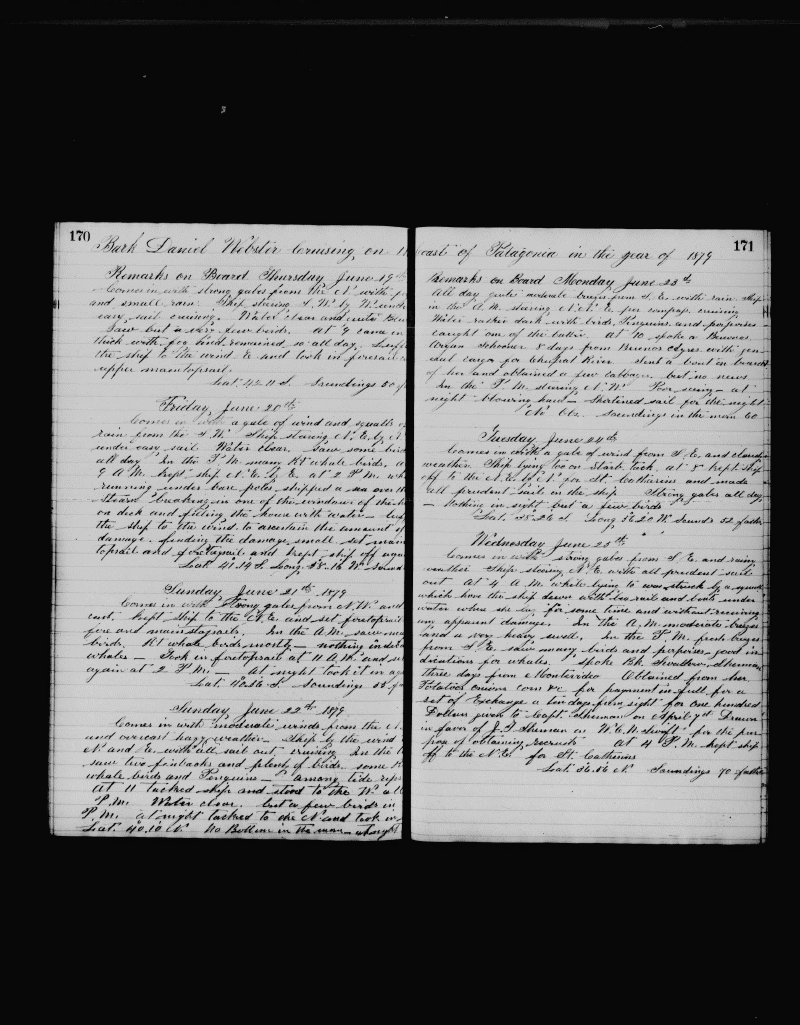 170
Bark Daniel Webster Cruising on
Remarks on Board Thursday June 19th
Comes in with strong gales from the N with
and small rain. Ship stering S.W. by W. under
easy sail cruising. Water clear and
Saw but a very few birds. At 9 came in
thick with fog and remained so all day.
the ship to the wind E and took in foresail
upper maintopsail.
Lat 42.11 S. Soundings 50
Friday June 20th
Comes in with a gale of wind and squalls of
rain from the S.W. Ship stering N.E. by N
under easy sail. Water clear. Saw some birds
all day. In the P.M. many Rt whale birds, at
9 A.M. kept ship N.E. by E. at 2 P.M. wh
running under bare poles, shipped a sea over the
breaking in one of the windows of the
on deck and filling the house with water
the ship to the wind to ascertain the amount of
damage. finding the damage small set main
topsail and foretopsail and kept ship off again
Lat 41.14 S. Long. 58.16 W. Sound
Sunday June 21st 1879
Comes in with strong gales from N.W. and
cast. kept ship to the N.E. and set foretopsail
jib and mainstaysail. In the A.M. saw
birds. Rt whale birds mostly nothing in
whales Took in foretopsail at 11 A.M. and set
again at 2 P.M. At night took it in again
Lat. 40.26 S. Soundings 55
Sunday June 22nd 1879
Comes in with moderate winds from the N.
and overcast hazy weather. Ship by the wind
N and E. with all sail out cruising In the
saw two finbacks and plenty of birds some Rt
whale birds and Penguins among tide rips
At 11 tacked ship and stood to the W. all
P.M. Water clear. but a few birds in
P.M. at night tacked to the N and took in
Lat. 40.10 N. No Bottom in the morn at night
171
Coast of Patagonia in the year of 1879
Remarks on Board Monday June 23d
All day quite moderate breezes from S.E. with rain. Ship
in the A.M. stering N.N.E. per compass cruising
Water rather dark with birds, Penguins and porpoises
caught one of the latter. At 10 spoke a Buenos
Ayres schooner 8 days from Buenos Ayres with gen
eral cargo for Chupat River sent a boat on board
of her and obtained a few cabbage. but no news
In the P.M. stering N.W. Poor seeing at
night blowing hard Shortened sail for the night
No Obs. Soundings in the morn 60
Tuesday June 24th
Comes in with a gale of wind from S.E. and cloudy
weather. Ship lying too on Starb. tack. at 8 kept ship
off to the N.E. by N for St. Catharins and made
all prudent sail on the ship Strong gales all day
Nothing in sight but a few birds
Lat. 38.26 S. Long 56.20 W. Sounds 52 faths
Wednesday June 25th
Comes in with strong gales from S.E. and rainy
weather Ship steering N.E. with all prudent sail
out At 4 A.M. while lying to was struck by a squall
which hove the ship down with lee rail and boats under
water where she lay for some time and without receiving
any apparent damage. In the A.M. moderate breezes
and a very heavy swell. In the P.M. fresh breezes
from S.E. saw many birds and porpoises good in
dications for whales. Spoke Bk. Swallow, Sherman
three days from Montevideo Obtained from her
Potatoes Onions corn &c for payment in full for a
set of Exchange a ten days from sight for one hundred
Dollars given to Capt. Sherman on April 7th Drawn
in favor of J.T. Sherman on for the pur
pose of obtaining recruits At 4 P.M. kept ship
off to the N.E. for St. Catharins
Lat. 36.56 N. Soundings 70 faths